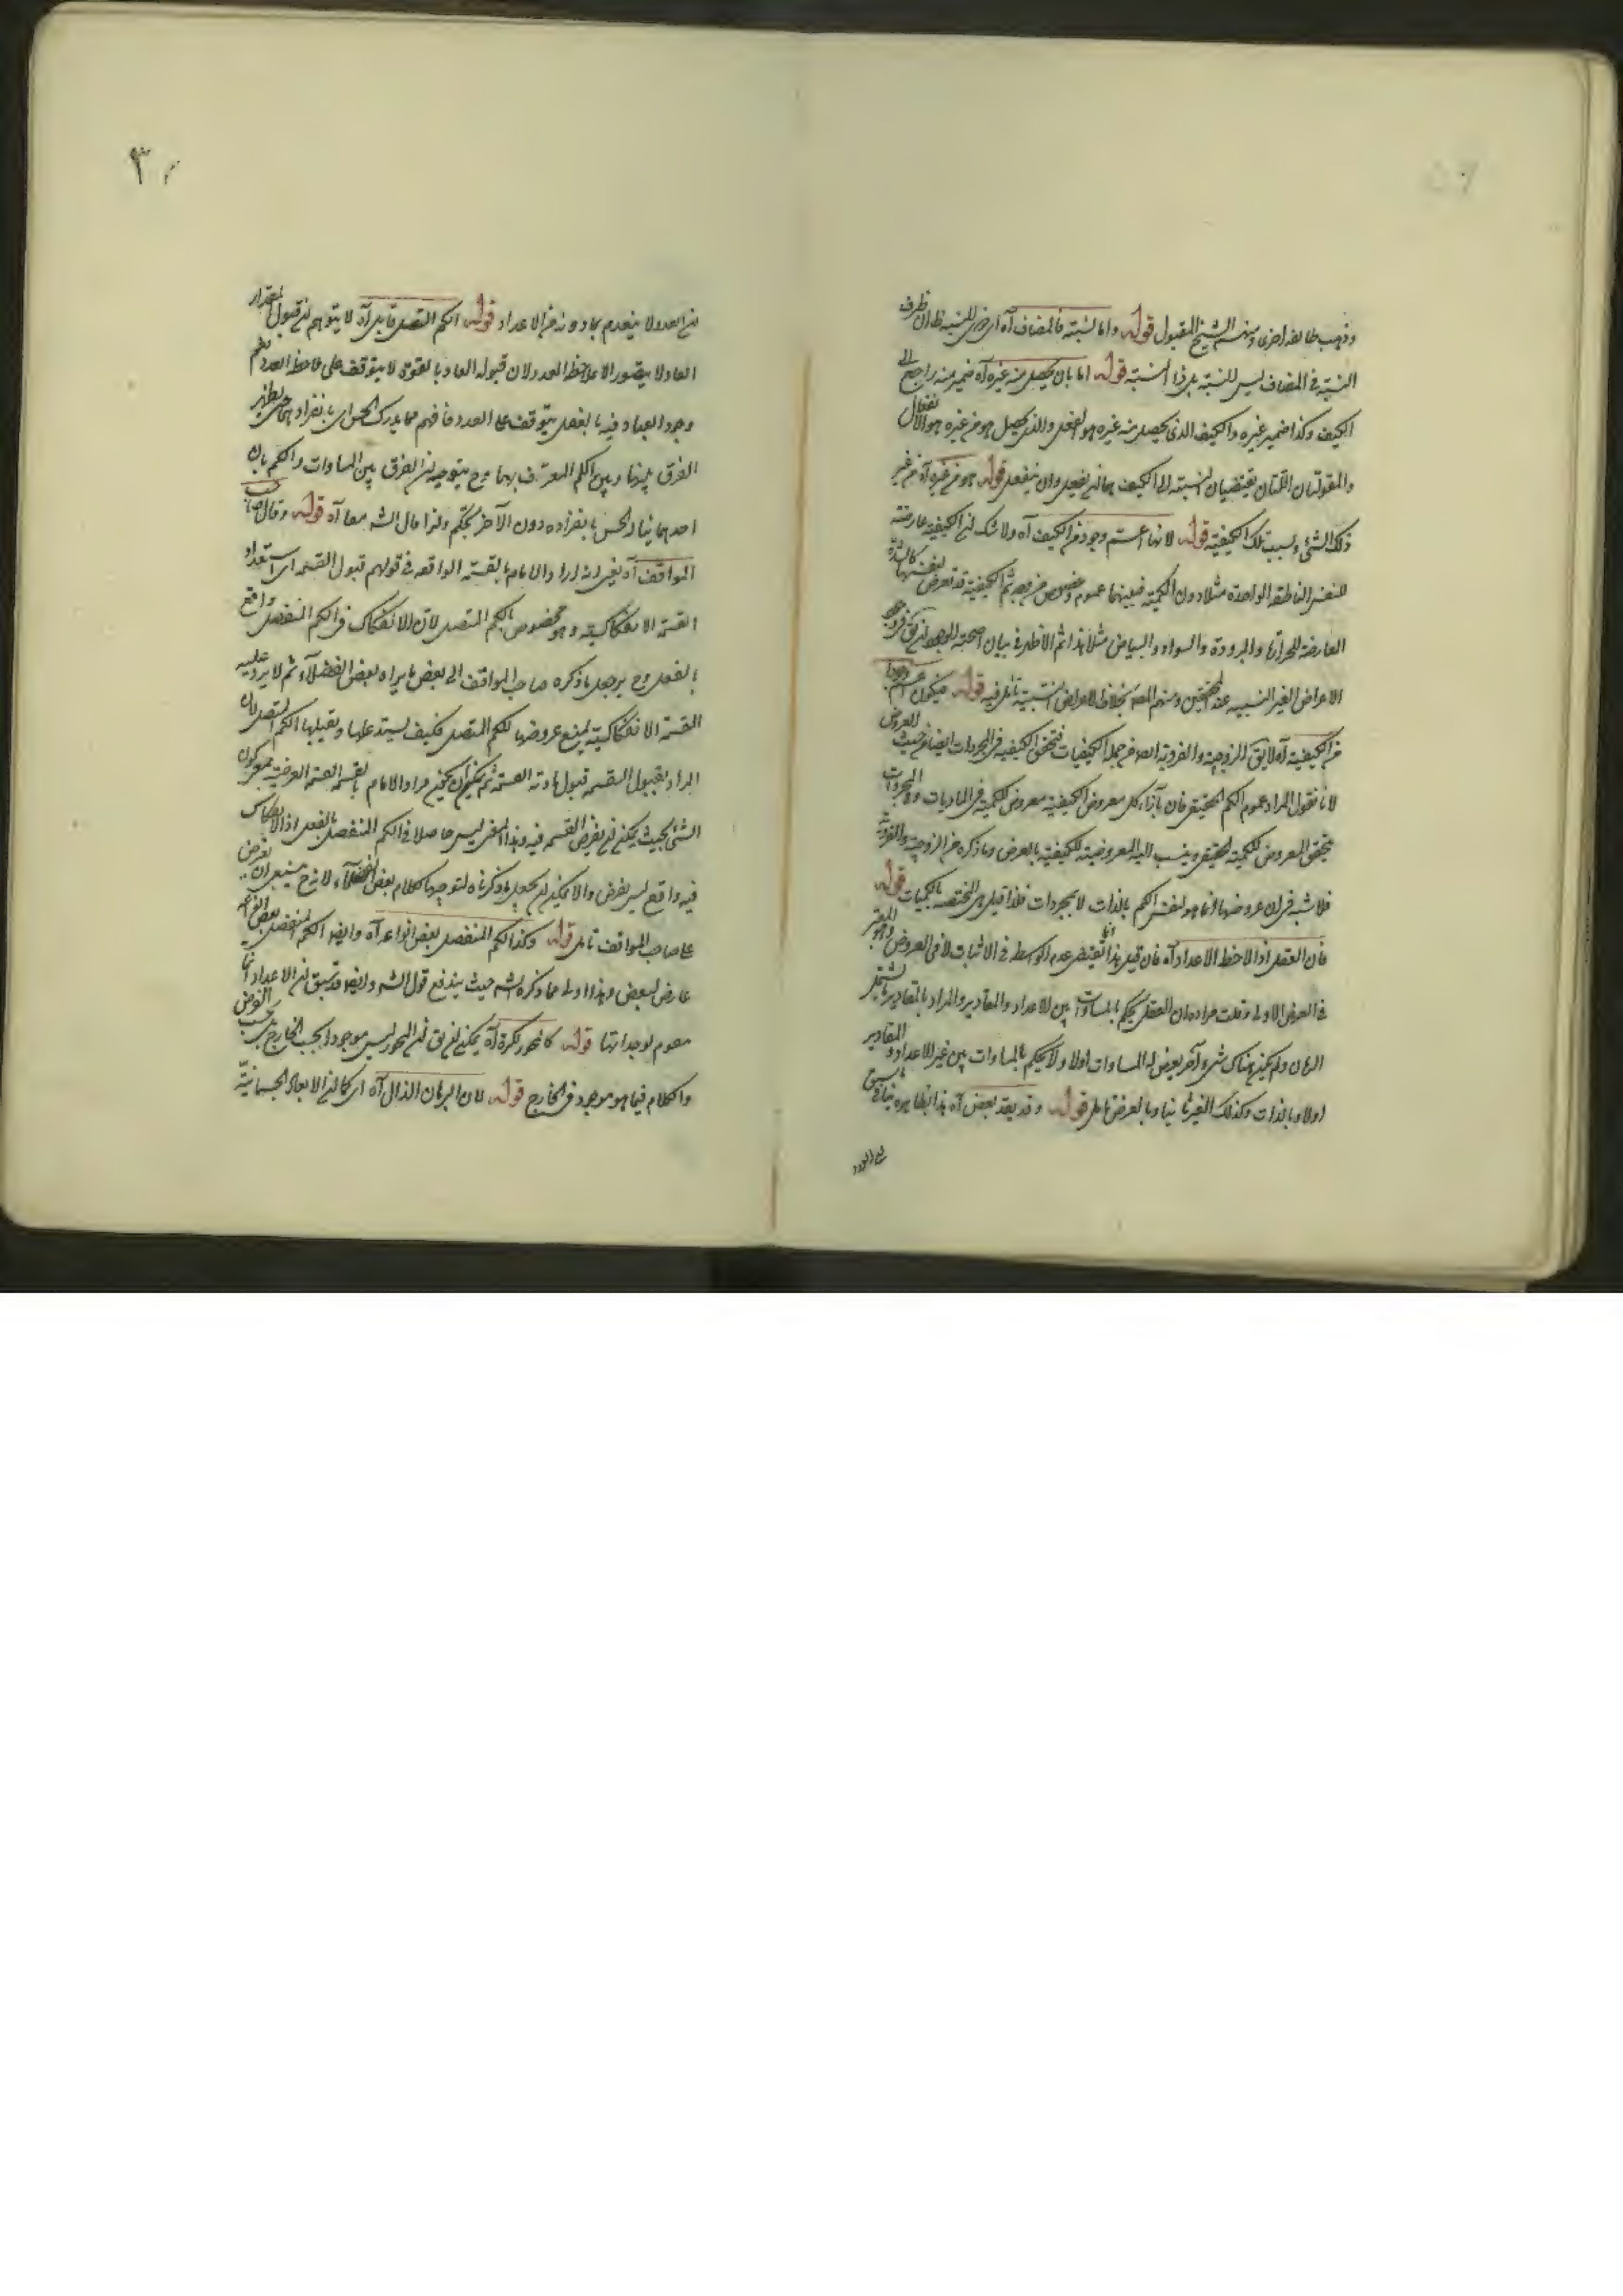 وذهب طائفة اخرى ومنهم الشيخ المقبول قوله واما لنسبته فالمضاف آه اى هى للنسبة ظاهران طرف
النسبة فى المضاف ليس للنسبة بل ذا النسبة قوله اما بان يحصل منه غيره آه ضمير منه راجع الى
الكيف وكذا ضمير غيره والكيف الذى يحصل منه غيره هو الفعل والذى يحصل هو من غيره هو الانفعال
والمقولتان اللتان تقتضيان لنسبته الى الكيف هما ان يفعل وان ينفعل قوله هو من غيره آه من غير
ذلك الشئ وبسبب تلك الكيفية قوله لانها اعم وجود من الكيف آه ولا شك ان الكيفية عارضة
للنفس الناطقة الواحدة مثلا دون الكمية فبينهما عموم وخصوص من وجه ثم الكيفية قد تعرض لنفسها كالشدة
العارضة للحرارة والبرودة والسواد والبياض مثلا هذا ثم الاظهر فى بيان اصحية الوجود ان يق
الاعراض الغير النسبية عند المحققين ومنهم المصه بخلاف الاعراض النسبية تامل فيه قوله فيكون اعم وجودا
من الكيفية آه لا يق الزوجية والفردية ايضا من جملة الكيفيات فتحقق الكيفية فى المجردات ايضا من حيث العروض
لانا نقول المراد عموم الكم الحقيقى فان بازاء كل معروض الكيفية معروض للكمية فى الماديات وفى المجردات
يتحقق المعروض للكمية الحقيقى وينسب اليه المعروضية للكيفية بالعرض وما ذكره من الزوجية والفردية
فلا شبه فى ان عروضها انما هو لنفس الكم بالذات لا لمجردات فلذا قيل هى المختصة بالكميات قوله
فان العقل اذا لاحظ الاعداد آه فان قيل هذا انما يقتضى عدم الوسط فى الاثبات لا فى العروض وهو المعتبر
فى العرض الاولى وقلت مراده ان العقل يحكم بالمساوات بين الاعداد والمقادير والمراد بالمقادير ما يشتمل
الزمان ولم يكن هناك شئ آخر يعرض له المساوات اولا ولا يحكم بالمساوات بين غير الاعداد والمقادير
اولا وبالذات وكذلك الغير ثانيا وبالعرض تامل قوله وقد يعد بعض آه هذا بظاهره ينافى ما سبق
من العدد
٣
ان العدد لا ينعدم بما دونه من الاعداد قوله الكم المتصل قابل آه لا يتوهم ان قبول المقدار
العاد لا يتصور الا بملاحظة العدد لان قبوله العاد بالقوة لا يتوقف على ملاحظة العدد نعم
وجود العاد فيه بالفعل يتوقف على العدد فافهم مما يدرك الحس اى بانفراد هما حتى يظهر
الفرق بينها وبين الكم المعرف بهما وح يتوجه ان الفرق بين المساوات والكم بان
احدهما يناله الحس بانفراده دون الآخر تحكم ولذا قال الشه معا آه قوله وقال صاحب
المواقف آه يعنى انه اراد الامام بالقسمة الواقعة فى قولهم قبول القسمة اى استعداد
القسمة الانفكاكية وهو مخصوص بالكم المتصل لان الانفكاك فى الكم المنفصل واقع
بالفعل وح يرجع ما ذكره صاحب المواقف الى بعض ما يراه بعض الفضلاء ثم لا يرد عليه
القسمة الانفكاكية يمتنع عروضها للكم المتصل فكيف يستدعلها ويقبلها الكم المتصل لان
المراد بقبول القسمة قبول مادته القسمة ثم يمكن ان يكون مراد الامام بالقسمة القسمة الفرضية بمعنى كون
الشئ بحيث يمكن ان يفرض القسمة فيه وهذا المعنى ليس حاصلا فى الكم المنفصل بالفعل اذ الانفكاك
فيه واقع ليس بفرض والا يمكن ان يجعل ما ذكرناه توجيها لكلام بعض الفضلاء لانه ح
على صاحب المواقف تامل قوله وكذا الكم المنفصل بعض انواعه آه وايضا الكم المنفصل بعض انواعه
عارض لبعض وهذا اولى مما ذكره الشه حيث يندفع قول الشه وايضا قد سبق ان الاعداد انما
مقوم لوحداتها قوله كمحور الكرة آه يمكن ان يق ان المحور ليس موجودا بحسب الخارج بل بحسب الفرض
والكلام فيما هو موجود فى الخارج قوله لان البرهان الدال آه اى كما ان الابعاد الجسمانية